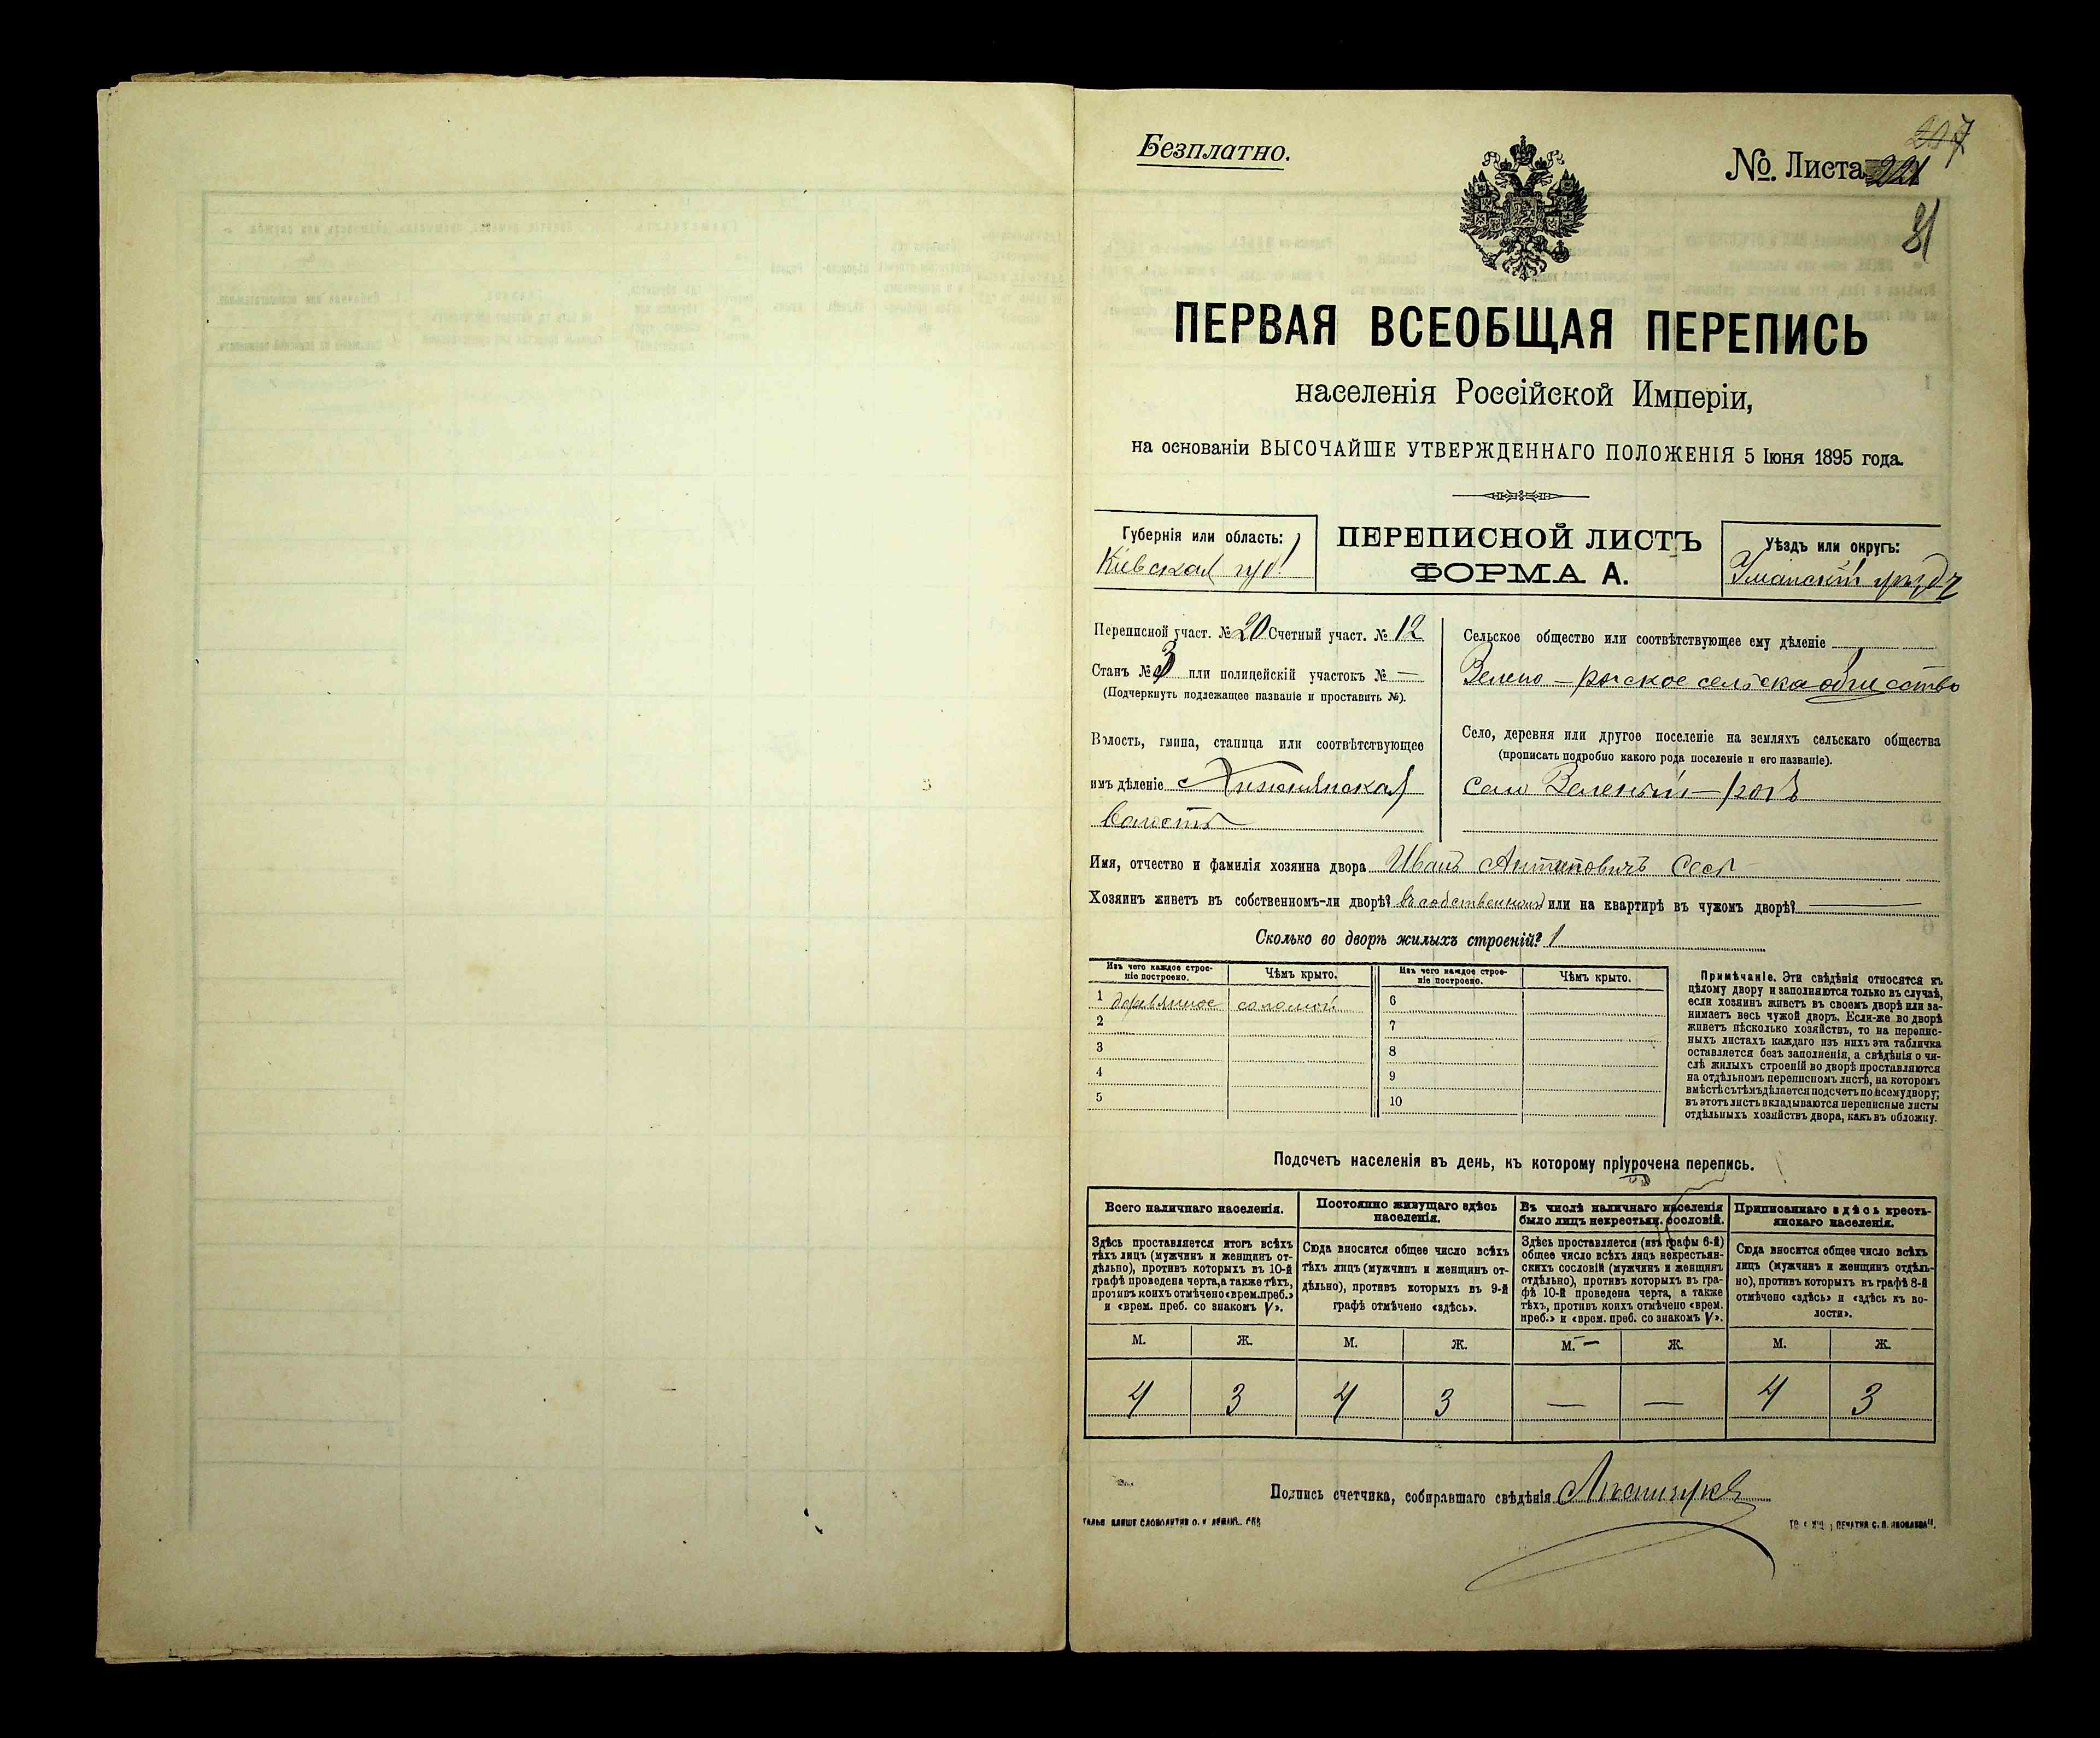 Безплатно.
№. Листа 221
207
81
ПЕРВАЯ ВСЕОБЩАЯ ПЕРЕПИСЬ
населенія Россійской Имперіи,
на основаніи ВЫСОЧАЙШЕ УТВЕРЖДЕННАГО ПОЛОЖЕНІЯ 5 Іюня 1895 года.
Губернія или область:
Кіевская губ.
ПЕРЕПИСНОЙ ЛИСТЪ
ФОРМА А.
Уѣздъ или округъ:
Уманскій уѣздъ
Переписной участ. № 20 Счетный участ. № 12
Станъ № 3 или полицейскій участокъ № —
(Подчеркнуть подлежащее названіе и проставить №).
Волость, гмина, станица или соотвѣтствующее
имъ дѣленіе
волость
Сельское общество или соотвѣтствующее ему дѣленіе
Зелено-рогское сельско общество
Село, деревня или другое поселеніе на земляхъ сельскаго общества
(прописать подробно какого рода поселеніе и его названіе).
село Зеленый-рогъ
Имя, отчество и фамилія хозяина двора Иванъ Антиповичъ
Хозяинъ живетъ въ собственномъ-ли дворѣ? въ собственномъ или на квартирѣ въ чужомъ дворѣ? —
Сколько во дворѣ жилыхъ строеній? 1
Изъ чего каждое строе-
ніе построено.
Чѣмъ крыто.
Изъ чего каждое строе-
ніе построено.
Чѣмъ крыто.
1 деревянное соломой 6
2 7
3 8
4 9
5 10
Примѣчаніе. Эти свѣдѣнія относятся къ
цѣлому двору и заполняются только въ случаѣ,
если хозяинъ живетъ въ своемъ дворѣ или за-
нимаетъ весь чужой дворъ. Если-же во дворѣ
живетъ нѣсколько хозяйствъ, то на перепис-
ныхъ листахъ каждаго изъ нихъ эта табличка
оставляется безъ заполненія, а свѣдѣнія о чи-
слѣ жилыхъ строеній во дворѣ проставляются
на отдѣльномъ переписномъ листѣ, на которомъ
вмѣстѣ съ тѣмъ дѣлается подсчетъ по всему двору;
въ этотъ листъ вкладываются переписные листы
отдѣльныхъ хозяйствъ двора, какъ въ обложку.
Подсчетъ населенія въ день, къ которому пріурочена перепись.
Всего наличнаго населенія.
Здѣсь проставляется итогъ всѣхъ
тѣхъ лицъ (мужчинъ и женщинъ от-
дѣльно), противъ которыхъ въ 10-й
графѣ проведена черта, а также тѣхъ,
противъ коихъ отмѣчено «врем. преб.»
и «врем. преб. со знакомъ V».
Постоянно живущаго здѣсь
населенія.
Сюда вносится общее число всѣхъ
тѣхъ лицъ (мужчинъ и женщинъ от-
дѣльно), противъ которыхъ въ 9-й
графѣ отмѣчено «здѣсь».
Въ числѣ наличнаго населенія
было лицъ некрестьян. сословій.
Здѣсь проставляется (изъ графы 6-й)
общее число всѣхъ лицъ некрестьян-
скихъ сословій (мужчинъ и женщинъ
отдѣльно), противъ которыхъ въ гра-
фѣ 10-й проведена черта, а также
тѣхъ, противъ коихъ отмѣчено «врем.
преб.» и «врем. преб. со знакомъ V».
Приписаннаго здѣсь кресть-
янскаго населенія.
Сюда вносится общее число всѣхъ
лицъ (мужчинъ и женщинъ отдѣль-
но), противъ которыхъ въ графѣ 8-й
отмѣчено «здѣсь» и «здѣсь къ во-
лости».
М. Ж. М. Ж. М. — Ж. М. Ж.
4 3 4 3 — — 4 3
Подпись счетчика, собиравшаго свѣдѣнія